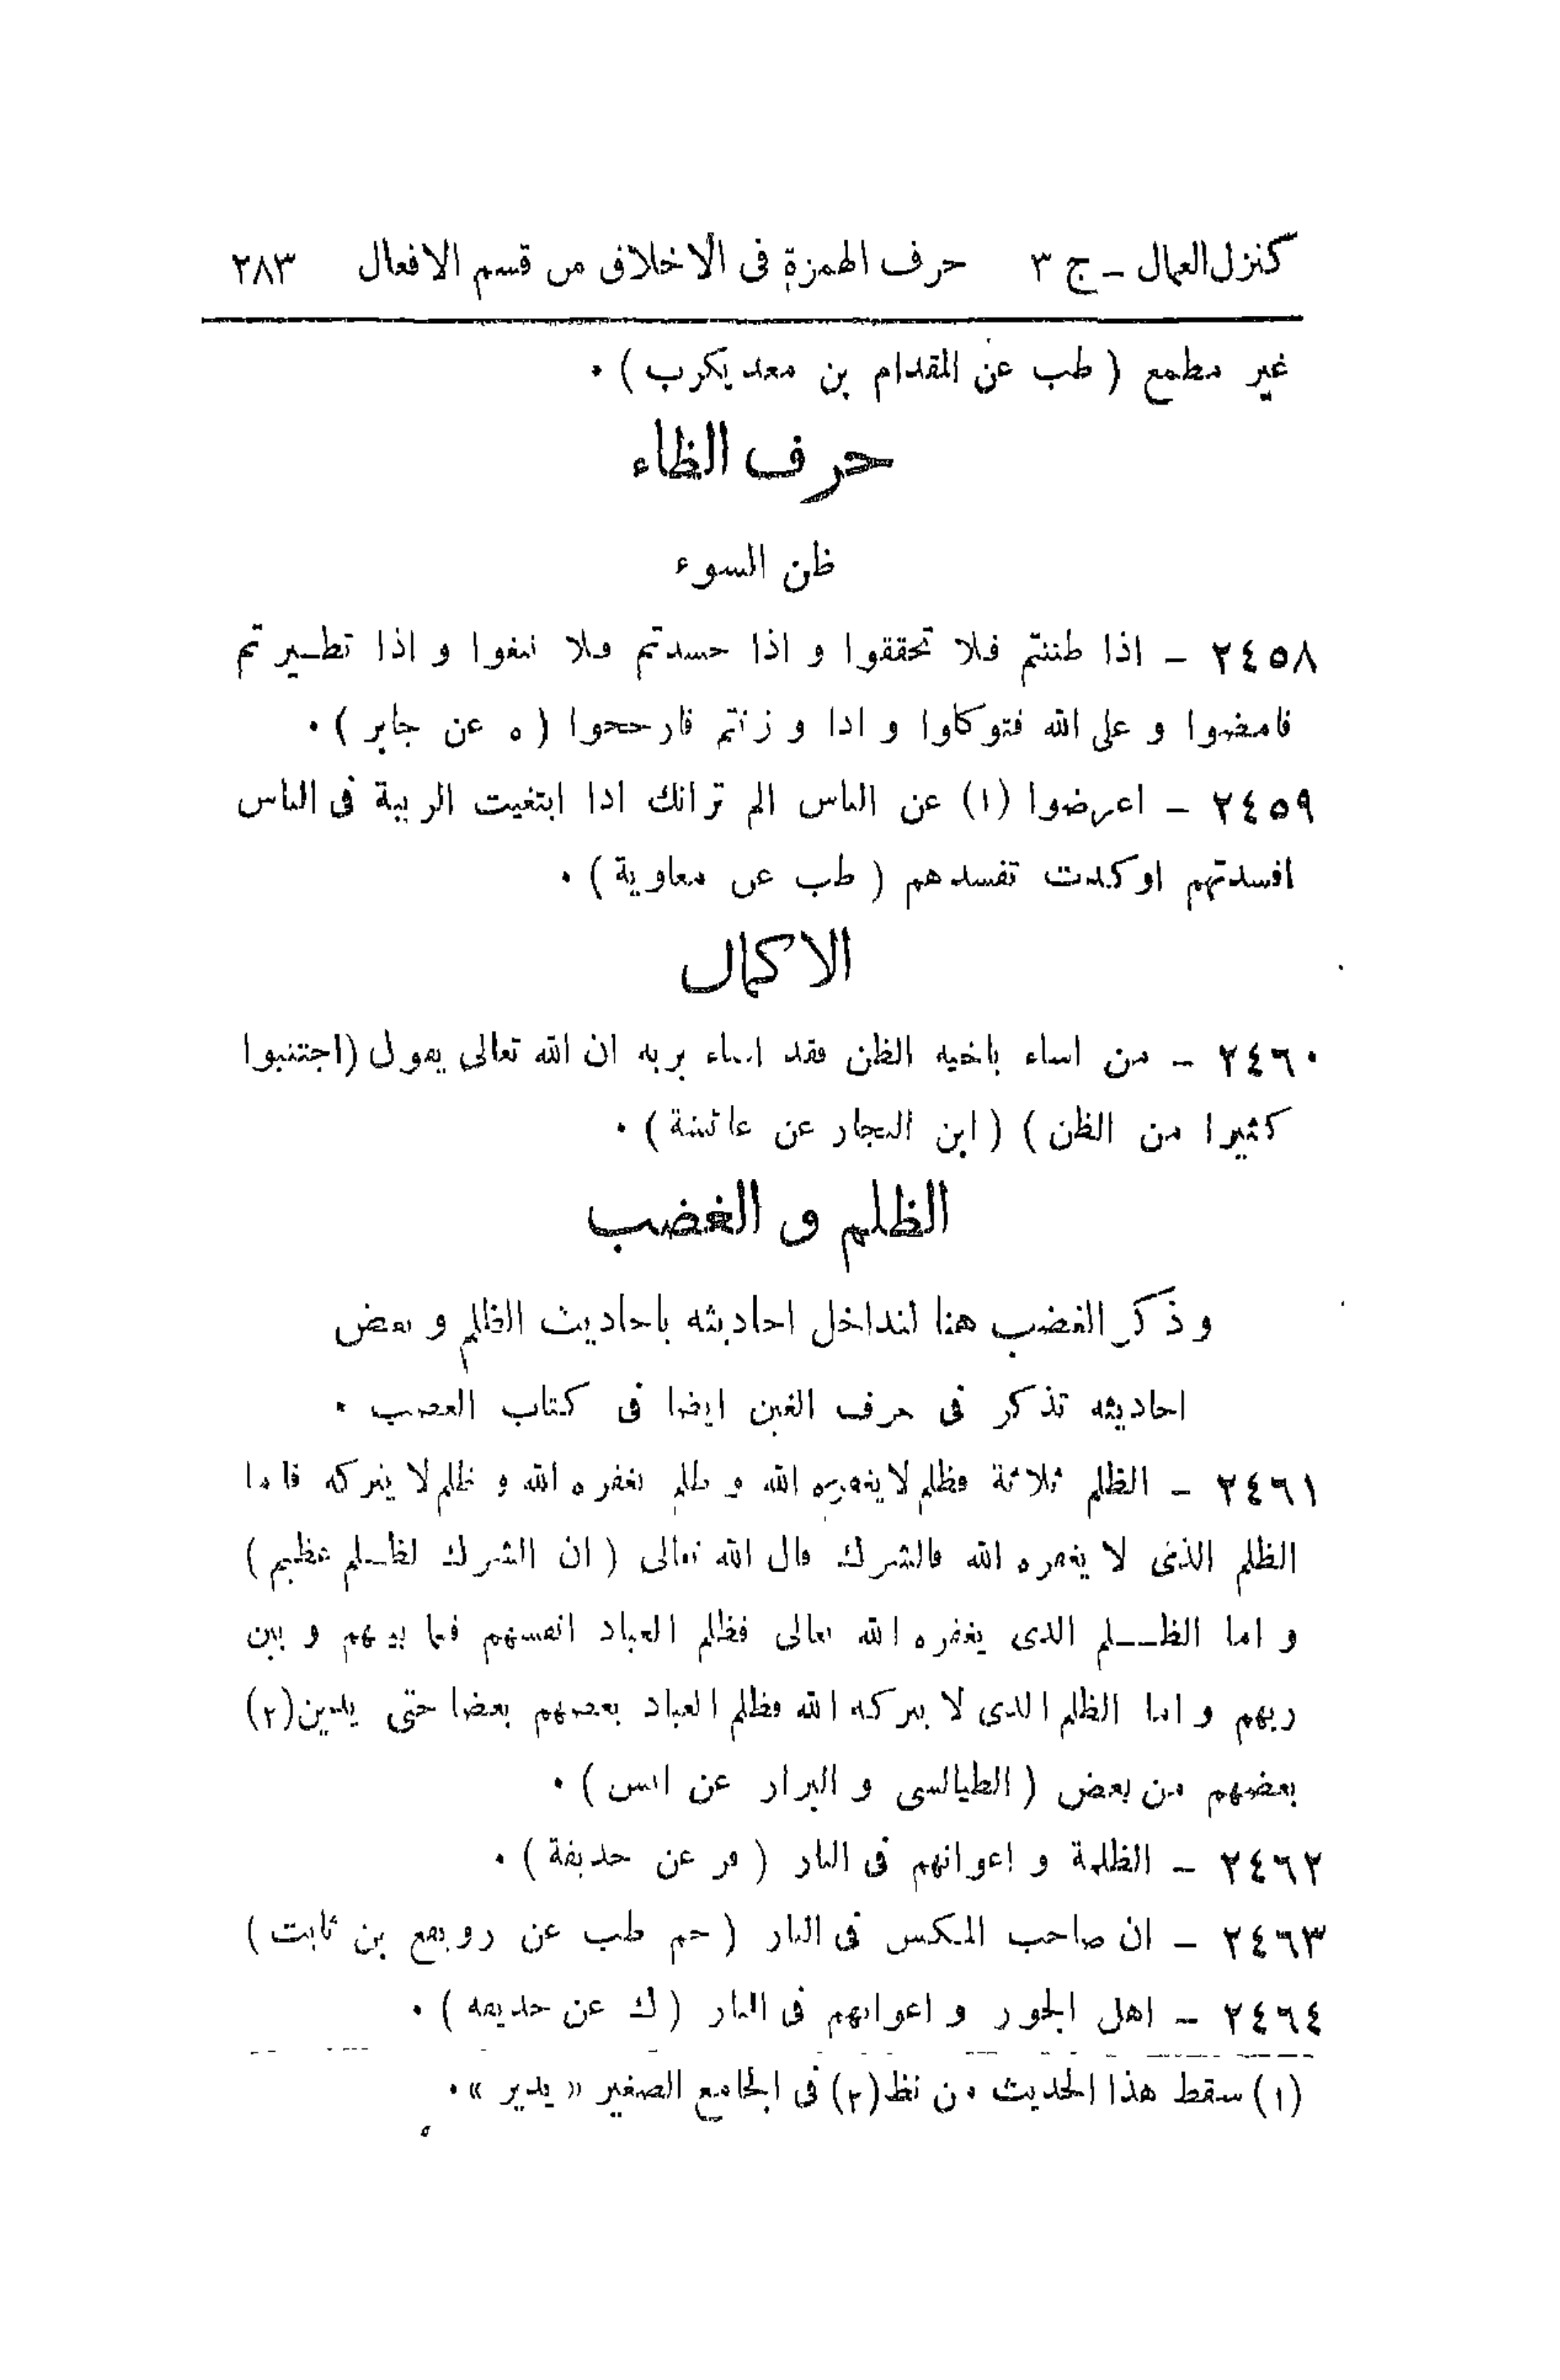 كنزل العمال ـ ج ٣ حرف الهمزة فى الاخلاق من قسم الافعال ٢٨٣
غير مطمع ( طب عن المقدام بن معد يكرب ) ٠
حرف الظاء
ظن السوء
٢٤٥٨ ـ اذا ظننتم فلا تحققوا و اذا حسدتم فلا تبغوا و اذا تطـير تم
فامضوا و على الله فتوكلوا و اذا و زنتم فارجحوا ( ه عن جابر ) ٠
٢٤٥٩ ـ اعرضوا (١) عن الناس الم تر انك اذا ابتغيت الريبة فى الناس
افسدتهم او كدت تفسدهم ( طب عن معاوية ) ٠
الاكمال
٢٤٦٠ ـ من اساء باخيه الظن فقد اساء بربه ان الله تعالى يقول (اجتنبوا
كثيرا من الظن ) ( ابن النجار عن عائشة ) ٠
الظلم و الغضب
و ذكر الغضب هنا لتداخل احاديثه باحاديث الظلم و بعض
احاديثه تذكر فى حرف الغين ايضا فى كتاب الغصب ٠
٢٤٦١ ـ الظلم ثلاثة فظلم لا يغفره الله و ظلم يغفره الله و ظلم لا يتركه فاما
الظلم الذى لا يغفره الله فالشرك قال الله تعالى ( ان الشرك لظـلم عظيم )
و اما الظــلم الذى يغفره الله تعالى فظلم العباد انفسهم فيما بينهم و بين
ربهم و اما الظلم الذى لا يتركه الله فظلم العباد بعضهم بعضا حتى يدين(٢)
بعضهم من بعض ( الطيالسى و البزار عن انس ) ٠
٢٤٦٢ ـ الظلمة و اعوانهم فى النار ( فر عن حذيفة ) ٠
٢٤٦٣ ـ ان صاحب المكس فى النار ( حم طب عن رويفع بن ثابت )
٢٤٦٤ ـ اهل الجور و اعوانهم فى النار ( ك عن حذيفة ) ٠
(١) سقط هذا الحديث من نظ (٢) فى الجامع الصغير « يدير » ٠